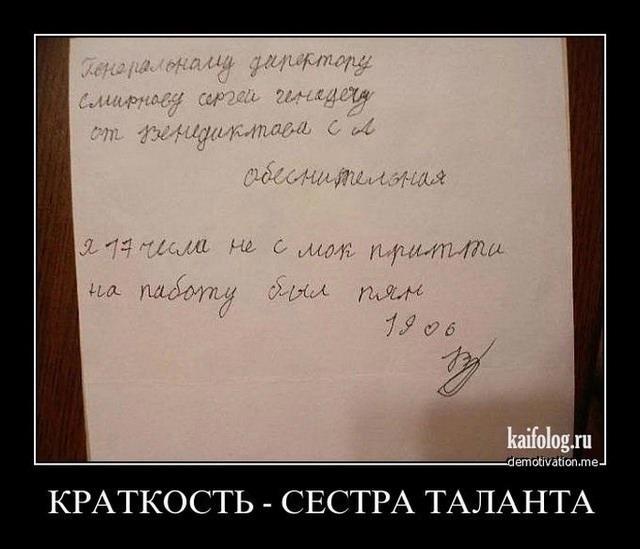 Генеральному директору
смирнову сергей генадечу
от Венедиктова С А
обеснительная
я 17 числа не с мок притти
на работу был пян
19 06
kaifolog.ru
demotivation.me
КРАТКОСТЬ - СЕСТРА ТАЛАНТА